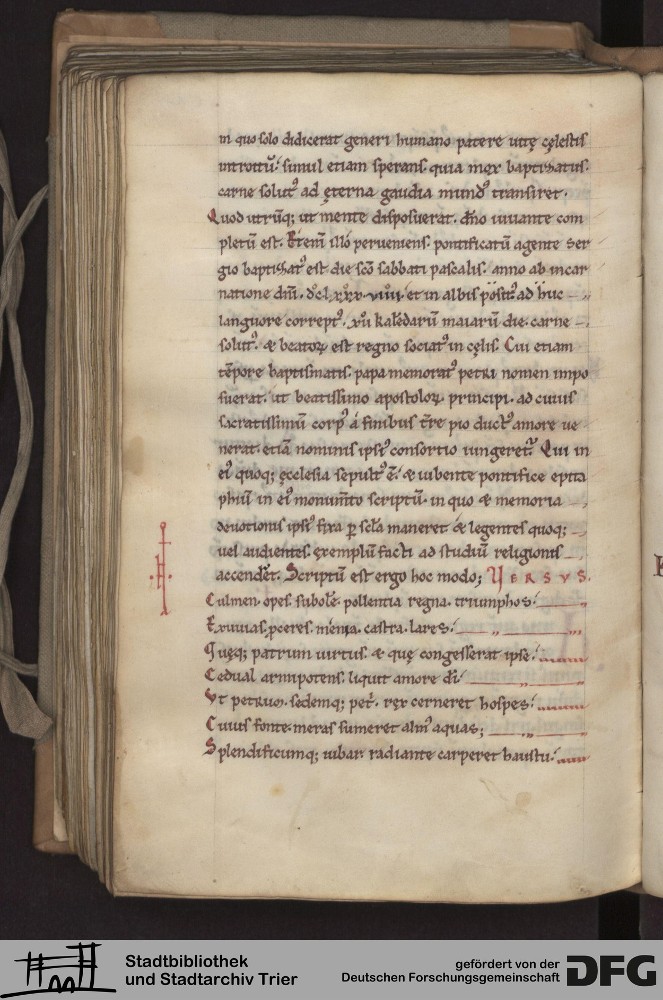 in quo solo didicerat generi humano patere uitę cęlestis
introitū: simul etiam sperans. quia mox baptizatus.
carne solut᷒ ad ęterna gaudia mund᷒ transiret.
Quod utrūq; ut mente disposuerat. dn̄o iuuante com
pletū est. Etenī illo perueniens. pontificatū agente ser
gio baptizat᷒ est die sc̄o sabbati pascalis. anno ab incar
natione dn̄i. dclxxxviiii. et in albis posit᷒ ad huc
languore corrept᷒. xii kalendarū maiarū die. carne
solut᷒. & beatoꝝ est regno sociat᷒ in cęlis. Cui etiam
tēpore baptismatis. papa memorat᷒ petri nomen impo
suerat. ut beatissimo apostoloꝝ principi. ad cuius
sacratissimū corp᷒ a finibus tr̄e pio duct᷒ amore ue
nerat. etiā nominis ipsi᷒ consortio iungeret᷑. Qui in
ei᷒ quoq; ęcclesia sepult᷒ ē. & iubente pontifice epita
phiū in ei᷒ monum̄to scriptū. in quo & memoria
deuotionis ipsi᷒ fixa ꝑ sc̄la maneret & legentes quoq;
uel audientes. exemplū facti ad studiū religionis
accenderet. Scriptū est ergo hoc modo; VERSVS.
Culmen. opes. subolē. pollentia regna. triumphos.
Exuuias. pceres. męnia. castra. lares.
Quęq; patrum uirtus. & quę congesserat ipse.
Cedual armipotens. liquit amore dī.
Ut petrum. sedemq; petri. rex cerneret hospes.
Cuius fonte. meras sumeret alm᷒ aquas;
Splendificumq; iubar. radiante carperet haustu.
Stadtbibliothek
und Stadtarchiv Trier
gefördert von der
Deutschen Forschungsgemeinschaft
DFG